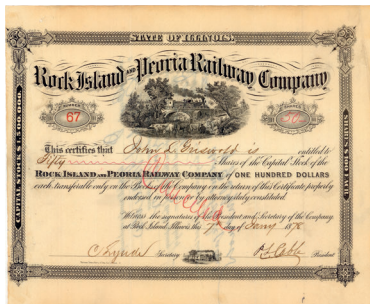 STATE OF ILLINOIS.
Rock Island and Peoria Railway Company
NUMBER
67
CAPITAL STOCK $1,500,000.
SHARES $100 EACH
This certifies that John L Griswold is entitled to
Fifty Shares of the Capital Stock of the
ROCK ISLAND AND PEORIA RAILWAY COMPANY of ONE HUNDRED DOLLARS
each, transferable only on the Books of the Company on the return of this Certificate properly
endorsed in person or by attorney duly constituted.
Witness the signatures of the President and Secretary of the Company
at Rock Island, Illinois, this 7th day of Jany 1878
Secretary
President